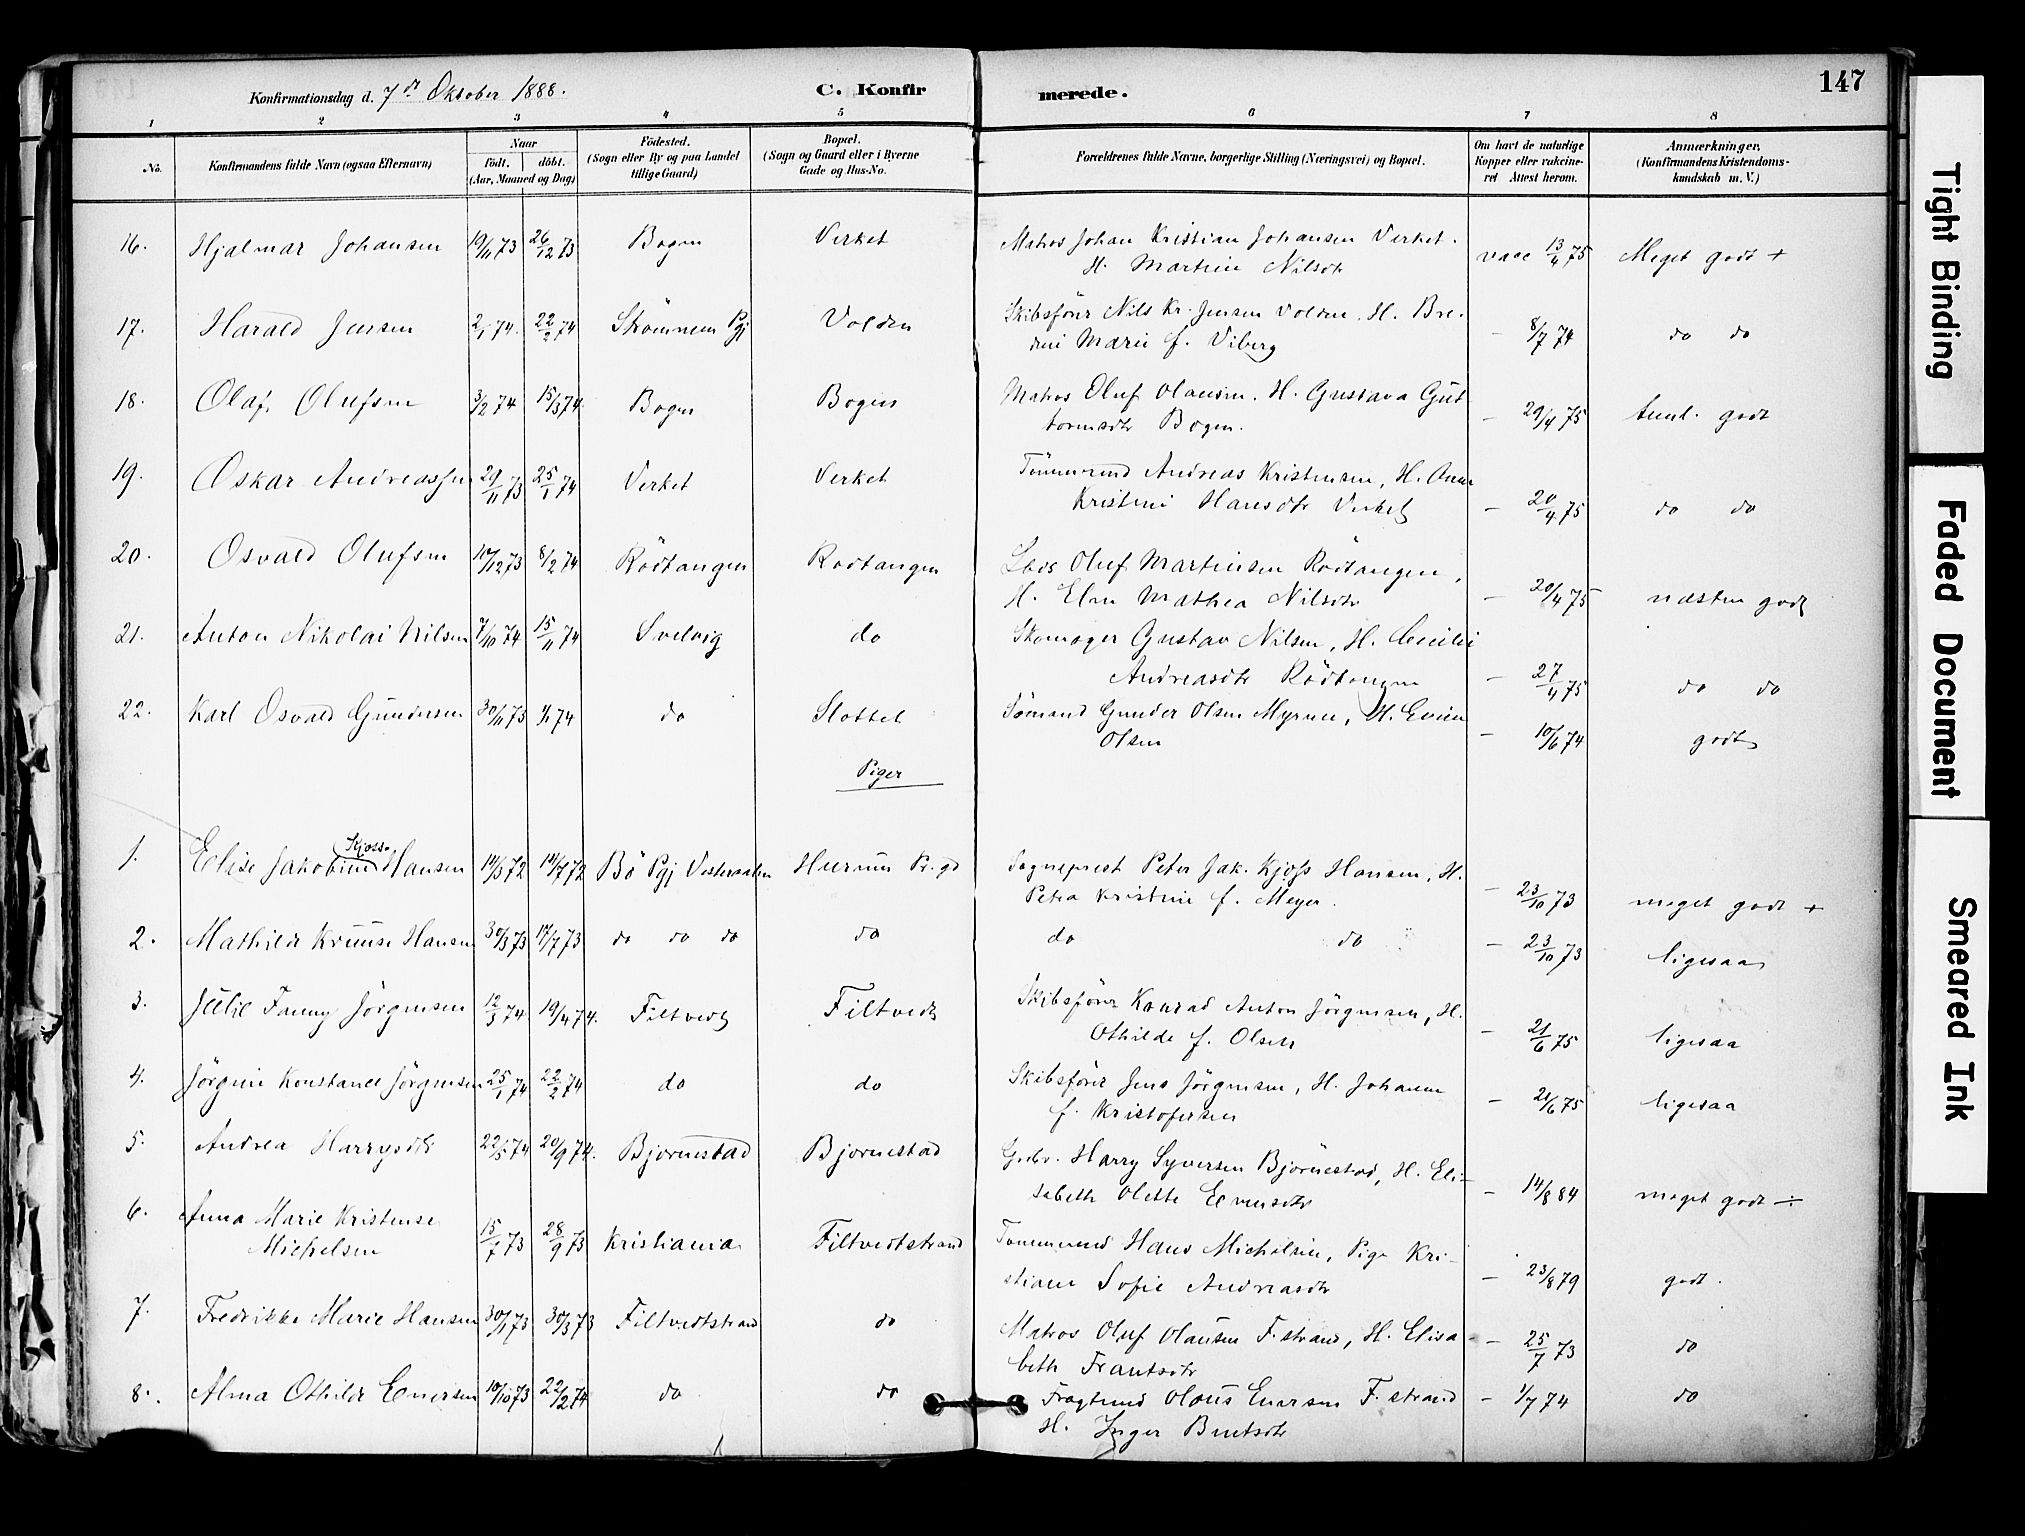 Konfirmationsdag d. 7de Oktober 1888. C. Konfirmerede. 147
1 2 3 4 5 6 7 8
No. Konfirmandens fulde Navn (ogsaa Efternavn) Naar født. døbt. (Aar, Maaned og Dag) Fødested. (Sogn eller By og paa Landet tillige Gaard) Bopæl. (Sogn og Gaard eller i Byerne Gade og Hus-No. Forældrenes fulde Navne, borgerlige Stilling (Næringsvei) og Bopæl. Om havt de naturlige Kopper eller vakcineret Attest herom. Anmærkninger. (Konfirmandens Kristendomskundskab m. V.)
16. Hjalmar Johansen 19/11 73 26/12 73 Bogen Verket Matros Johan Kristian Johansen Verket. H. Martine Nilsdtr vacc 13/4 75 Meget godt +
17. Harald Jensen 2/1 74. 22/2 74 Strömmen Pgj Volden Skibsförer Nils Kr. Jensen Volden. H. Bredine Marie f. Viberg - 8/7 74 do do
18. Olaf Olufsen 3/2 74 15/3 74 Bogen Bogen Matros Oluf Olausen. H. Gustava Guttormsdtr Bogen. - 29/4 75 teml. godt
19. Oskar Andreassen 29/11 73 25/1 74 Verket Verket Tömmermd Andreas Kristensen, H. Anne Kristine Hansdtr Verket - 20/4 75 do do
20. Osvald Olufsen 10/12 73 8/2 74 Rödtangen Rödtangen Lods Oluf Martinsen Rödtangen, H. Elen Mathea Nilsdtr - 20/4 75 næsten godt
21. Anton Nikolai Nilsen 7/10 74 15/11 74 Svelvig do Skomager Gustav Nilsen, H. Cecilie Andreasdtr Rödtangen - 27/4 75 do do
22. Karl Osvald Gundersen 30/11 73 1/1 74 do Slottet Sömand Gunder Olsen Myrene, H. Evine Olsen - 10/6 74 godt
Piger
1. Elise Jakobine Kjoss Hansen 14/3 72 14/7 72 Bö Pgj Vesteraalen Hurum Pr.gd Sogneprest Peter Jak. Kjoss Hansen, H. Petra Kristine f. Meyer. - 23/10 73 meget godt +
2. Mathilde Kruuse Hansen 30/3 73 17/7 73 do do do do do do - 23/10 73 ligesaa
3. Julie Fanny Jörgensen 12/3 74 19/4 74. Filtvedt Filtvedt Skibsförer Konrad Anton Jörgensen, H. Othilde f. Olsen - 21/6 75 ligesaa
4. Jörgine Konstance Jörgensen 25/1 74 22/2 74 do do Skibsförer Jens Jörgensen, H. Johanne f. Kristofersen - 21/6 75 ligesaa
5. Andrea Harrysdtr 22/5 74 20/9 74. Björnestad Björnestad Gdbr. Harry Syversen Björnestad, H. Elisabeth Olette Evensdtr - 14/8 84 meget godt ÷
6. Anna Marie Kristense Michelsen 15/7 73 28/9 73 Kristiania Filtvedtstrand Tömmermd Hans Michelsen, Pige Kristiane Sofie Andreasdtr - 23/8 79 godt.
7. Fredrikke Marie Hansen 30/1 73 30/3 73 Filtvedtstrand do Matros Oluf Olausen F.strand, H. Elisabeth Frantsdtr - 25/7 73 do
8. Alma Othilde Enersen 10/10 73 22/2 74 do do Fragtmd Olaus Enersen F.strand H. Inger Berntsdtr - 1/7 74 do
Tight Binding
Faded Document
Smeared Ink